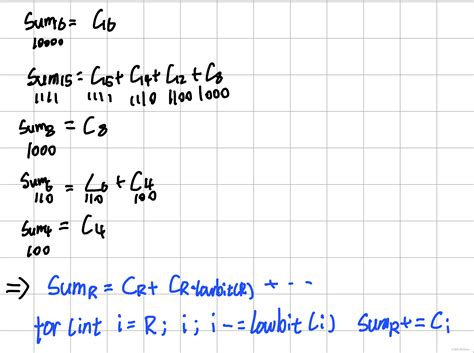 Sum16 = C16
10000
Sum15 = C15 + C14 + C12 + C8
1111 1111 1110 1100 1000
Sum8 = C8
1000
Sum6 = C6 + C4
110 110 100
Sum4 = C4
100
=> SumR = CR + CR-lowbit(R) + ...
for (int i = R; i; i -= lowbit(i) SumR += Ci